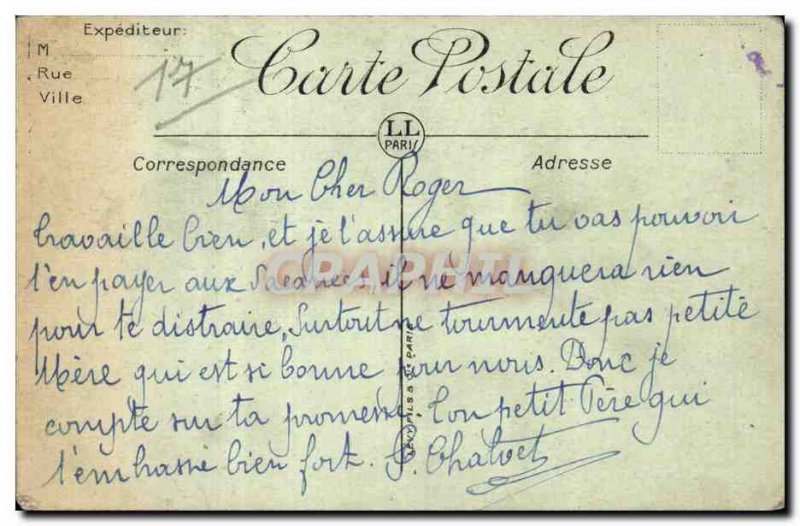 Expéditeur:
M
Rue
Ville
17
Carte Postale
LL
PARIS
Correspondance
Adresse
Mon Cher Roger
travaille bien, et je t'assure que tu vas pouvoir
t'en payer aux vacances, il ne manquera rien
pour te distraire. Surtout ne tourmente pas petite
Mère qui est si bonne pour nous. Donc je
compte sur ta promesse. Ton petit Père qui
t'embrasse bien fort. P. Chatvet
LEVY FILS & Cie PARIS
GRAPHTI